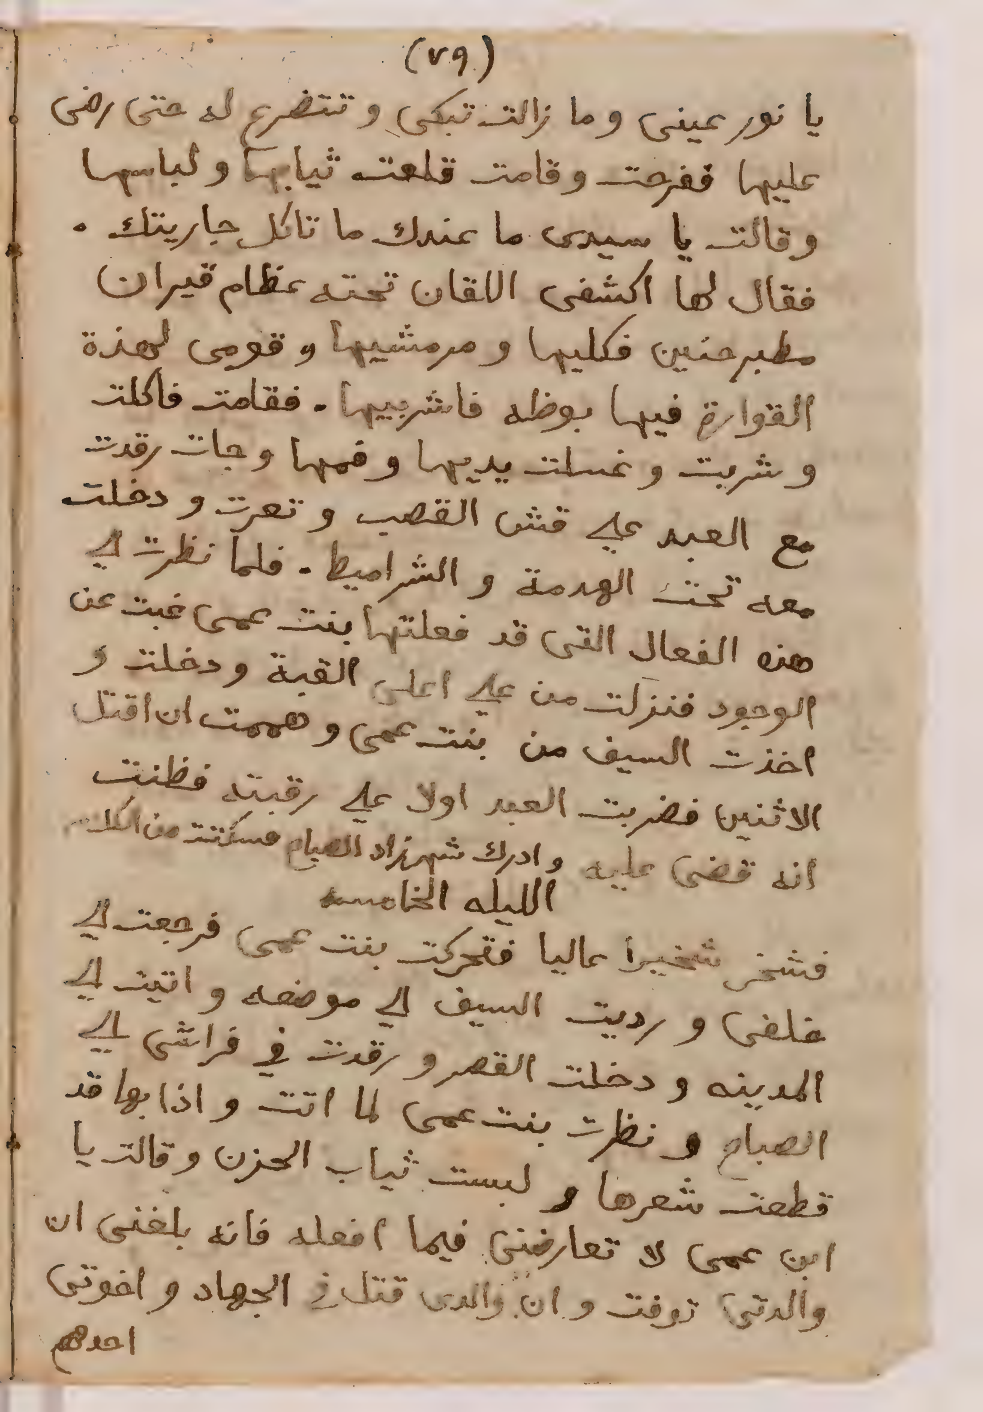 (٧٩)
يا نور عينى وما زالت تبكى وتتضرع له حتى رضى
عليها ففرحت وقامت قلعت ثيابها ولباسها
وقالت يا سيدى ما عندك ما تاكل جاريتك .
فقال لها اكشفى اللقان تحته عظام فيران
مطبوخين فكليها ومرمشيها وقومى لهذة
القوارة فيها بوظه فاشربيها . فقامت فاكلت
وشربت وغسلت يديها وفمها وجات رقدت
مع العبد علي قش القصب وتعرت ودخلت
معه تحت الهدمة والشراميط . فلما نظرت الي
هذه الفعال التى قد فعلتها بنت عمى غبت عن
الوجود فنزلت من علي اعلى القبة ودخلت و
اخذت السيف من بنت عمى وهممت ان اقتل
الاثنين فضربت العبد اولا علي رقبته فظننت
انه قضى عليه وادرك شهرزاد الصباح فسكتت من الكلام
الليله الخامسه
فشخر شخيرا عاليا فتحركت بنت عمى فرجعت الي
خلفى ورديت السيف الي موضعه واتيت الي
المدينه ودخلت القصر ورقدت في فراشى الي
الصباح ونظرت بنت عمى لما اتت واذا بها قد
قطعت شعرها ولبست ثياب الحزن وقالت يا
ابن عمى لا تعارضنى فيما افعله فانه بلغنى ان
والدتى توفت وان والدى قتل في الجهاد واخوتى
احدهم